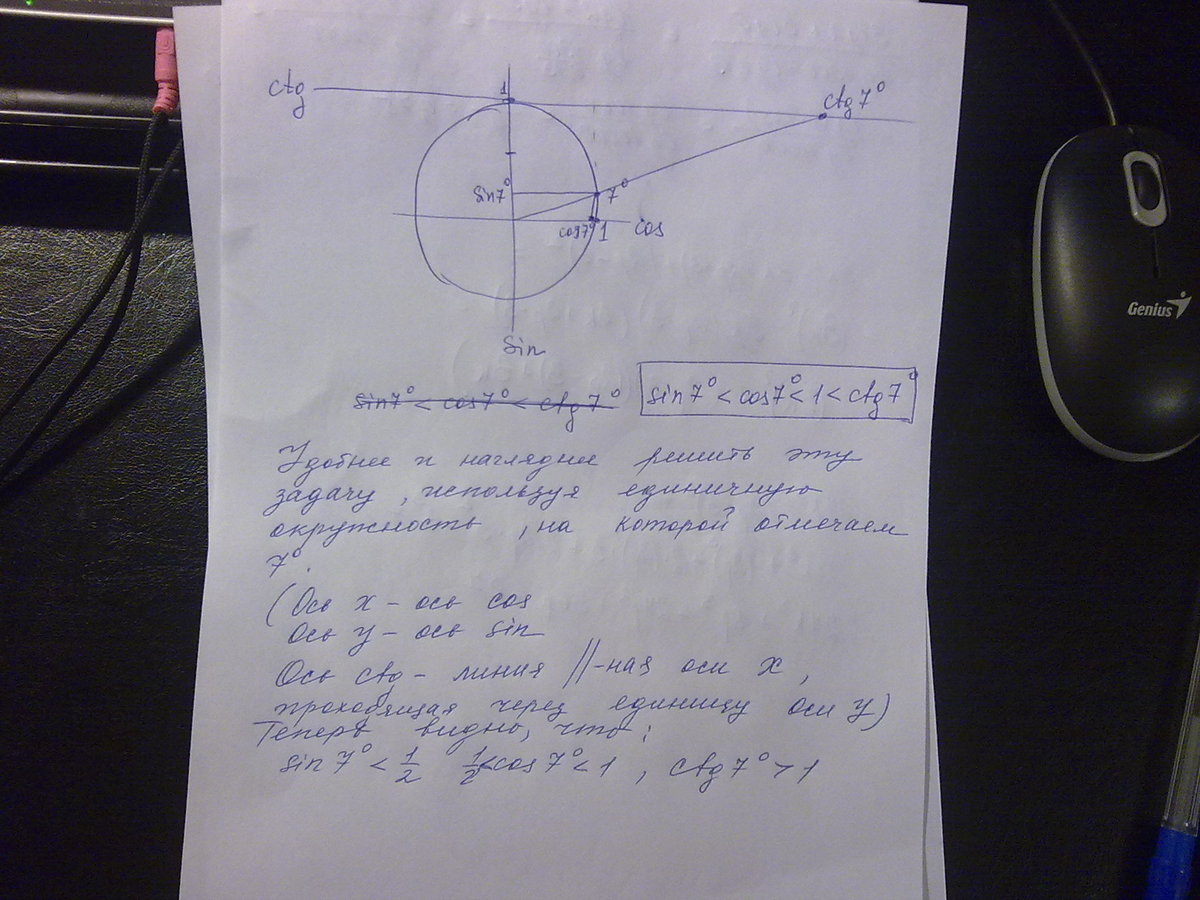 ctg
1
ctg 7°
sin7°
7°
cos7°
1
cos
sin
sin7° < cos7° < ctg 7°
sin7° < cos7° < 1 < ctg 7°
Удобнее и нагляднее решить эту
задачу, используя единичную
окружность, на которой отмечаем
7°.
(Ось x - ось cos
Ось y - ось sin
Ось ctg - линия ||-ная оси x,
проходящая через единицу оси y)
Теперь видно, что:
sin 7° < 1/2   1/2 < cos 7° < 1 , ctg 7° > 1
Genius